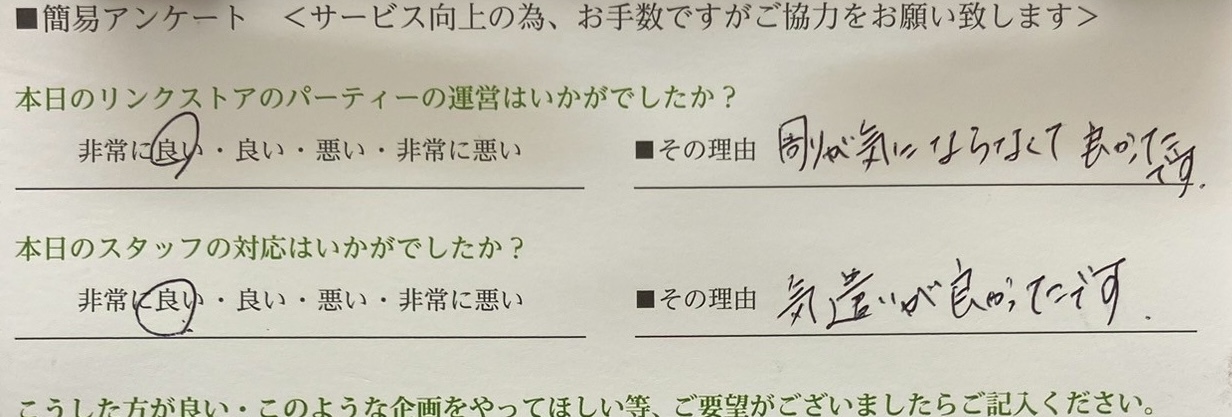 ■簡易アンケート ＜サービス向上の為、お手数ですがご協力をお願い致します＞
本日のリンクストアのパーティーの運営はいかがでしたか？
非常に良い・良い・悪い・非常に悪い ■その理由 周りが気にならなくて良かったです.
本日のスタッフの対応はいかがでしたか？
非常に良い・良い・悪い・非常に悪い ■その理由 気遣いが良かったです.
こうした方が良い・このような企画をやってほしい等、ご要望がございましたらご記入ください。